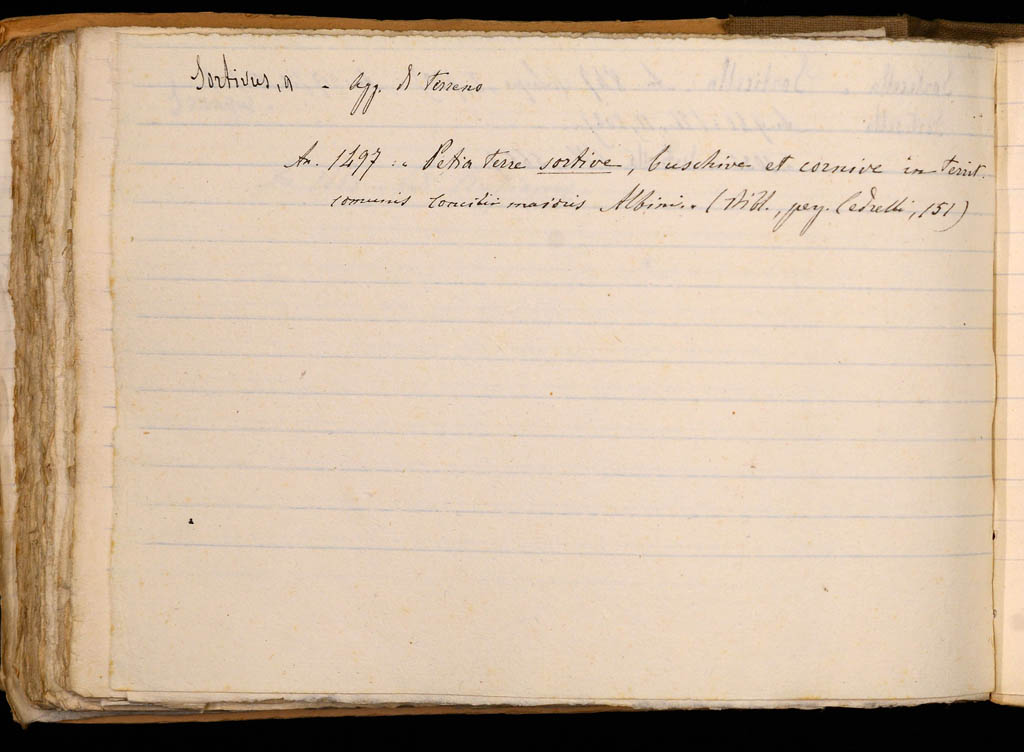 Sortivus, a - Agg. di terreno
An. 1497 : « Petia terre sortive, buschive et cornive in territ.
comunis Concilii maioris Albini. » (Bibl., perg. Cedrelli, 151)